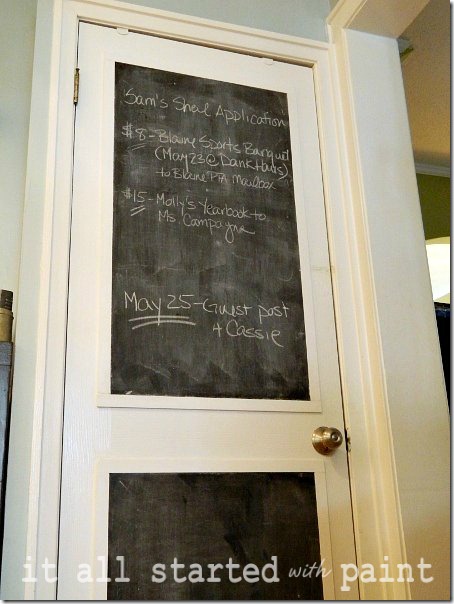 Sam's Shed Application
$8 - Blaine Sports Banquet
(May 23 @ Dank Haus)
to Blaine PTA Mailbox
$15 - Molly's Yearbook to
Ms. Campagne
May 25 - Guest post
4 Cassie
it all started with paint